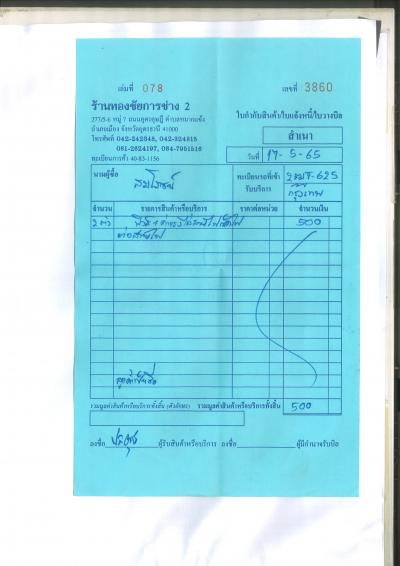 เล่มที่ 078 เลขที่ 3860
ร้านทองชัยการช่าง 2
277/5-6 หมู่ 7 ถนนอุดรดุษฎี ตำบลหมากแข้ง
อำเภอเมือง จังหวัดอุดรธานี 41000
โทรศัพท์ 042-242548, 042-324815
081-2624197, 084-7951516
ทะเบียนการค้า 40-83-1156
ใบกำกับสินค้า/ใบแจ้งหนี้/ใบวางบิล
สำเนา
วันที่ 17-5-65
นามผู้ซื้อ สมโภชน์
ทะเบียนรถที่เข้ารับบริการ 2ฒฌ-625
กรุงเทพ
จำนวน รายการสินค้าหรือบริการ ราคาต่อหน่วย จำนวนเงิน
2 ตัว 500
ต่อสายไฟ
ลูกค้า
รวมมูลค่าสินค้าหรือบริการทั้งสิ้น (ตัวอักษร) รวมมูลค่าสินค้าหรือบริการทั้งสิ้น 500
ลงชื่อ ผู้รับสินค้าหรือบริการ ลงชื่อ ผู้มีอำนาจรับบิล